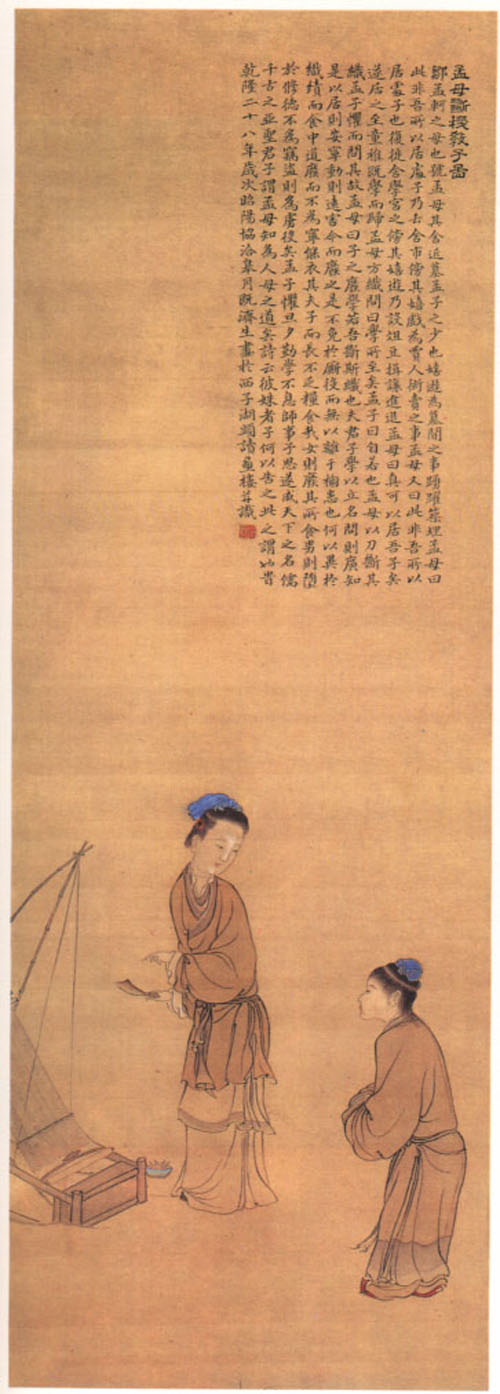 孟母斷機教子啚
鄒孟軻之母也號孟母其舍近墓孟子之少也嬉遊為墓間之事踴躍築埋孟母曰
此非吾所以居處子乃去舍市傍其嬉戲為賈人衒賣之事孟母又曰此非吾所以
居處子也復徙舍學宮之傍其嬉遊乃設俎豆揖讓進退孟母曰真可以居吾子矣
遂居之至童稚既學而歸孟母方織問曰學所至矣孟子曰自若也孟母以刀斷其
織孟子懼而問其故孟母曰子之廢學若吾斷斯織也夫君子學以立名問則廣知
是以居則安寧動則遠害今而廢之是不免於廝役而無以離于禍患也何以異於
織績而食中道廢而不為寧能衣其夫子而長不乏糧食哉女則廢其所食男則墮
於修德不為竊盜則為虜役矣孟子懼旦夕勤學不息師事子思遂成天下之名儒
千古之亞聖君子謂孟母知為人母之道矣詩云彼姝者子何以告之此之謂也旹
乾隆二十八年歲次昭陽協洽皋月既濟生畫於西子湖頭讀畫樓并識